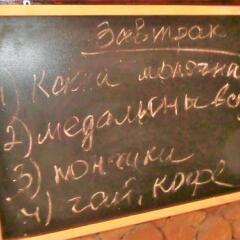 Завтрак
1) Каша молочна
2) медальоны вс
3) пончики
4) чай, кофе